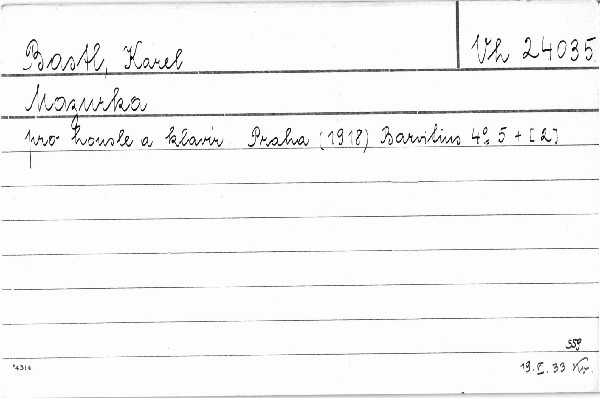 Bastl, Karel
Vh 24035
Mazurka
pro housle a klavír Praha (1918) Barvitius 4º. 5 + [2]
559
*4314
19.V.33 Kr.